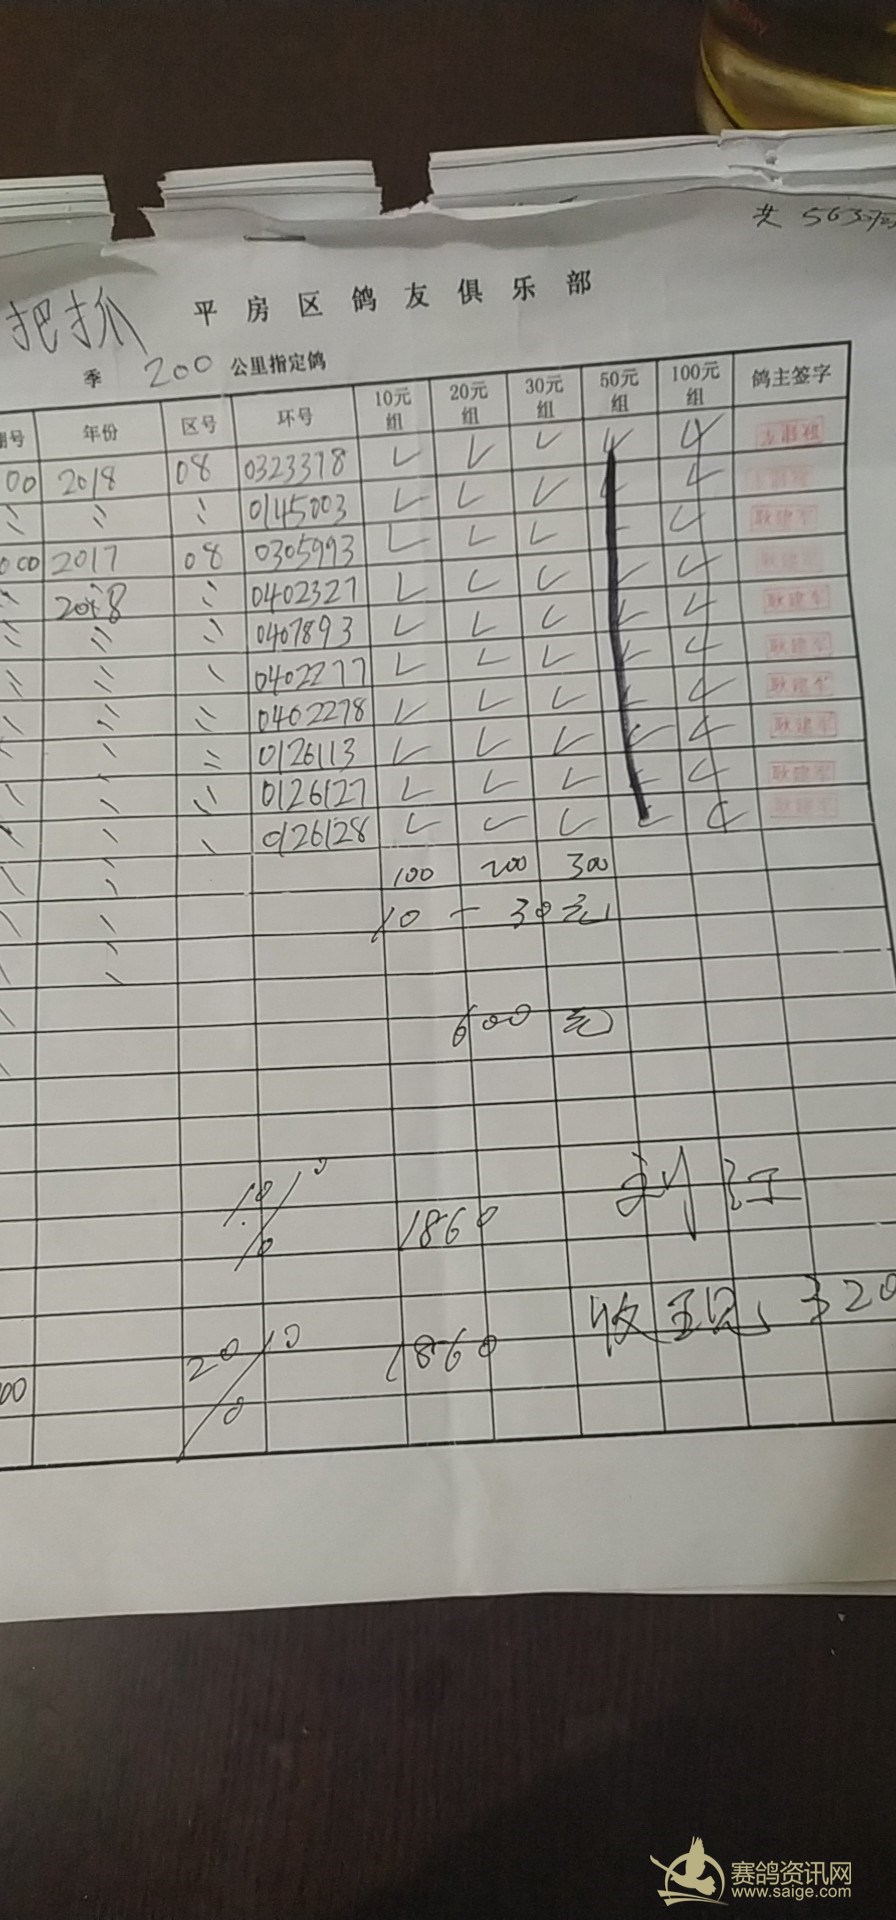 共 563
把抓 平房区鸽友俱乐部
季 200 公里指定鸽
号 年份 区号 环号 10元组 20元组 30元组 50元组 100元组 鸽主签字
00 2018 08 0323378 ✓ ✓ ✓ ✓ ✓
〃 〃 〃 0145003 ✓ ✓ ✓ ✓ ✓
000 2017 08 0305993 ✓ ✓ ✓ ✓ ✓ 耿建军
〃 2018 〃 0402327 ✓ ✓ ✓ ✓ ✓ 耿建军
〃 〃 〃 0407893 ✓ ✓ ✓ ✓ ✓ 耿建军
〃 〃 〃 0402277 ✓ ✓ ✓ ✓ ✓ 耿建军
〃 〃 〃 0402278 ✓ ✓ ✓ ✓ ✓ 耿建军
〃 〃 〃 0126113 ✓ ✓ ✓ ✓ ✓ 耿建军
〃 〃 〃 0126127 ✓ ✓ ✓ ✓ ✓ 耿建军
〃 〃 〃 0126128 ✓ ✓ ✓ ✓ ✓ 耿建军
100 200 300
10 - 30元
600元
10/10
10 1860
20/10 1860 收 现 320
00 0
赛鸽资讯网
www.saige.com